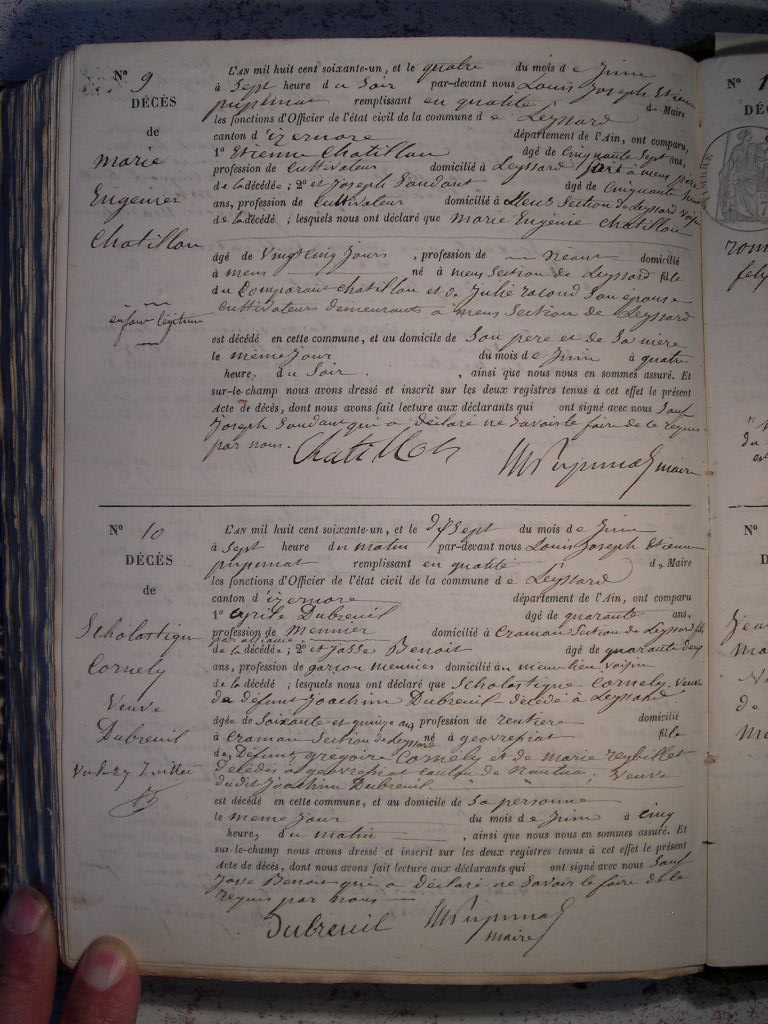 N° 9
DÉCÈS
de
marie
Eugenier
Chatillon
enfant légitime
L'AN mil huit cent soixante-un, et le quatre du mois de Juin
à Sept heure du Soir par-devant nous Louis Joseph Etienne
remplissant en qualité de Maire
les fonctions d'Officier de l'état civil de la commune de Leyssard
canton d'izernore département de l'Ain, ont comparu,
1° Etienne Chatillon âgé de Cinquante Sept ans,
profession de Cultivateur domicilié à Leyssard
de la décédée ; 2° et Joseph âgé de Cinquante
ans, profession de Cultivateur domicilié à Section de Leyssard voisin
de la décédé ; lesquels nous ont déclaré que Marie Eugénie Chatillon
âgé de Vingt Cinq Jours , profession de Néant domicilié
à mens né à mens Section de Leyssard fille
du Comparant Chatillon et de Julie Son épouse
Cultivateurs demeurants à mens Section de Leyssard
est décédé en cette commune, et au domicile de Son père et de Sa mère
le même jour du mois de Juin à quatre
heure, du Soir. , ainsi que nous nous en sommes assuré. Et
sur-le-champ nous avons dressé et inscrit sur les deux registres tenus à cet effet le présent
Acte de décès, dont nous avons fait lecture aux déclarants qui ont signé avec nous Sauf
Joseph qui a déclaré ne Savoir le faire de ce requis
par nous.
Chatillon maire
N° 10
DÉCÈS
de
Scholastique
Cornely
Veuve
Dubreuil
L'AN mil huit cent soixante-un, et le Sept du mois de Juin
à Sept heure du matin par-devant nous Louis Joseph Etienne
remplissant en qualité de Maire
les fonctions d'Officier de l'état civil de la commune de Leyssard
canton d'izernore département de l'Ain, ont comparu
1° Cyrile Dubreuil âgé de quarante ans,
profession de Meunier domicilié à Craman Section de Leyssard fils
de la décédée ; 2° et Josse Benoit âgé de quarante deux
ans, profession de garson meunier domicilié au même lieu voisin
de la décédé ; lesquels nous ont déclaré que Scholastique Cornely Veuve
de défunt Joachim Dubreuil décédé à Leyssard
âgée de Soixante et quinze ans, profession de rentière domicilié
à Craman Section de Leyssard né à geovreissiat fille
de défunt grégoire Cornely et de marie reybillet
décédés à geovreissiat canton de Nantua, Veuve
dudit Joachim Dubreuil
est décédé en cette commune, et au domicile de Sa personne
le même jour du mois de Juin à Cinq
heure, du matin , ainsi que nous nous en sommes assuré. Et
sur-le-champ nous avons dressé et inscrit sur les deux registres tenus à cet effet le présent
Acte de décès, dont nous avons fait lecture aux déclarants qui ont signé avec nous Sauf
Josse Benoit qui a déclaré ne Savoir le faire de ce
requis par nous
Dubreuil
maire